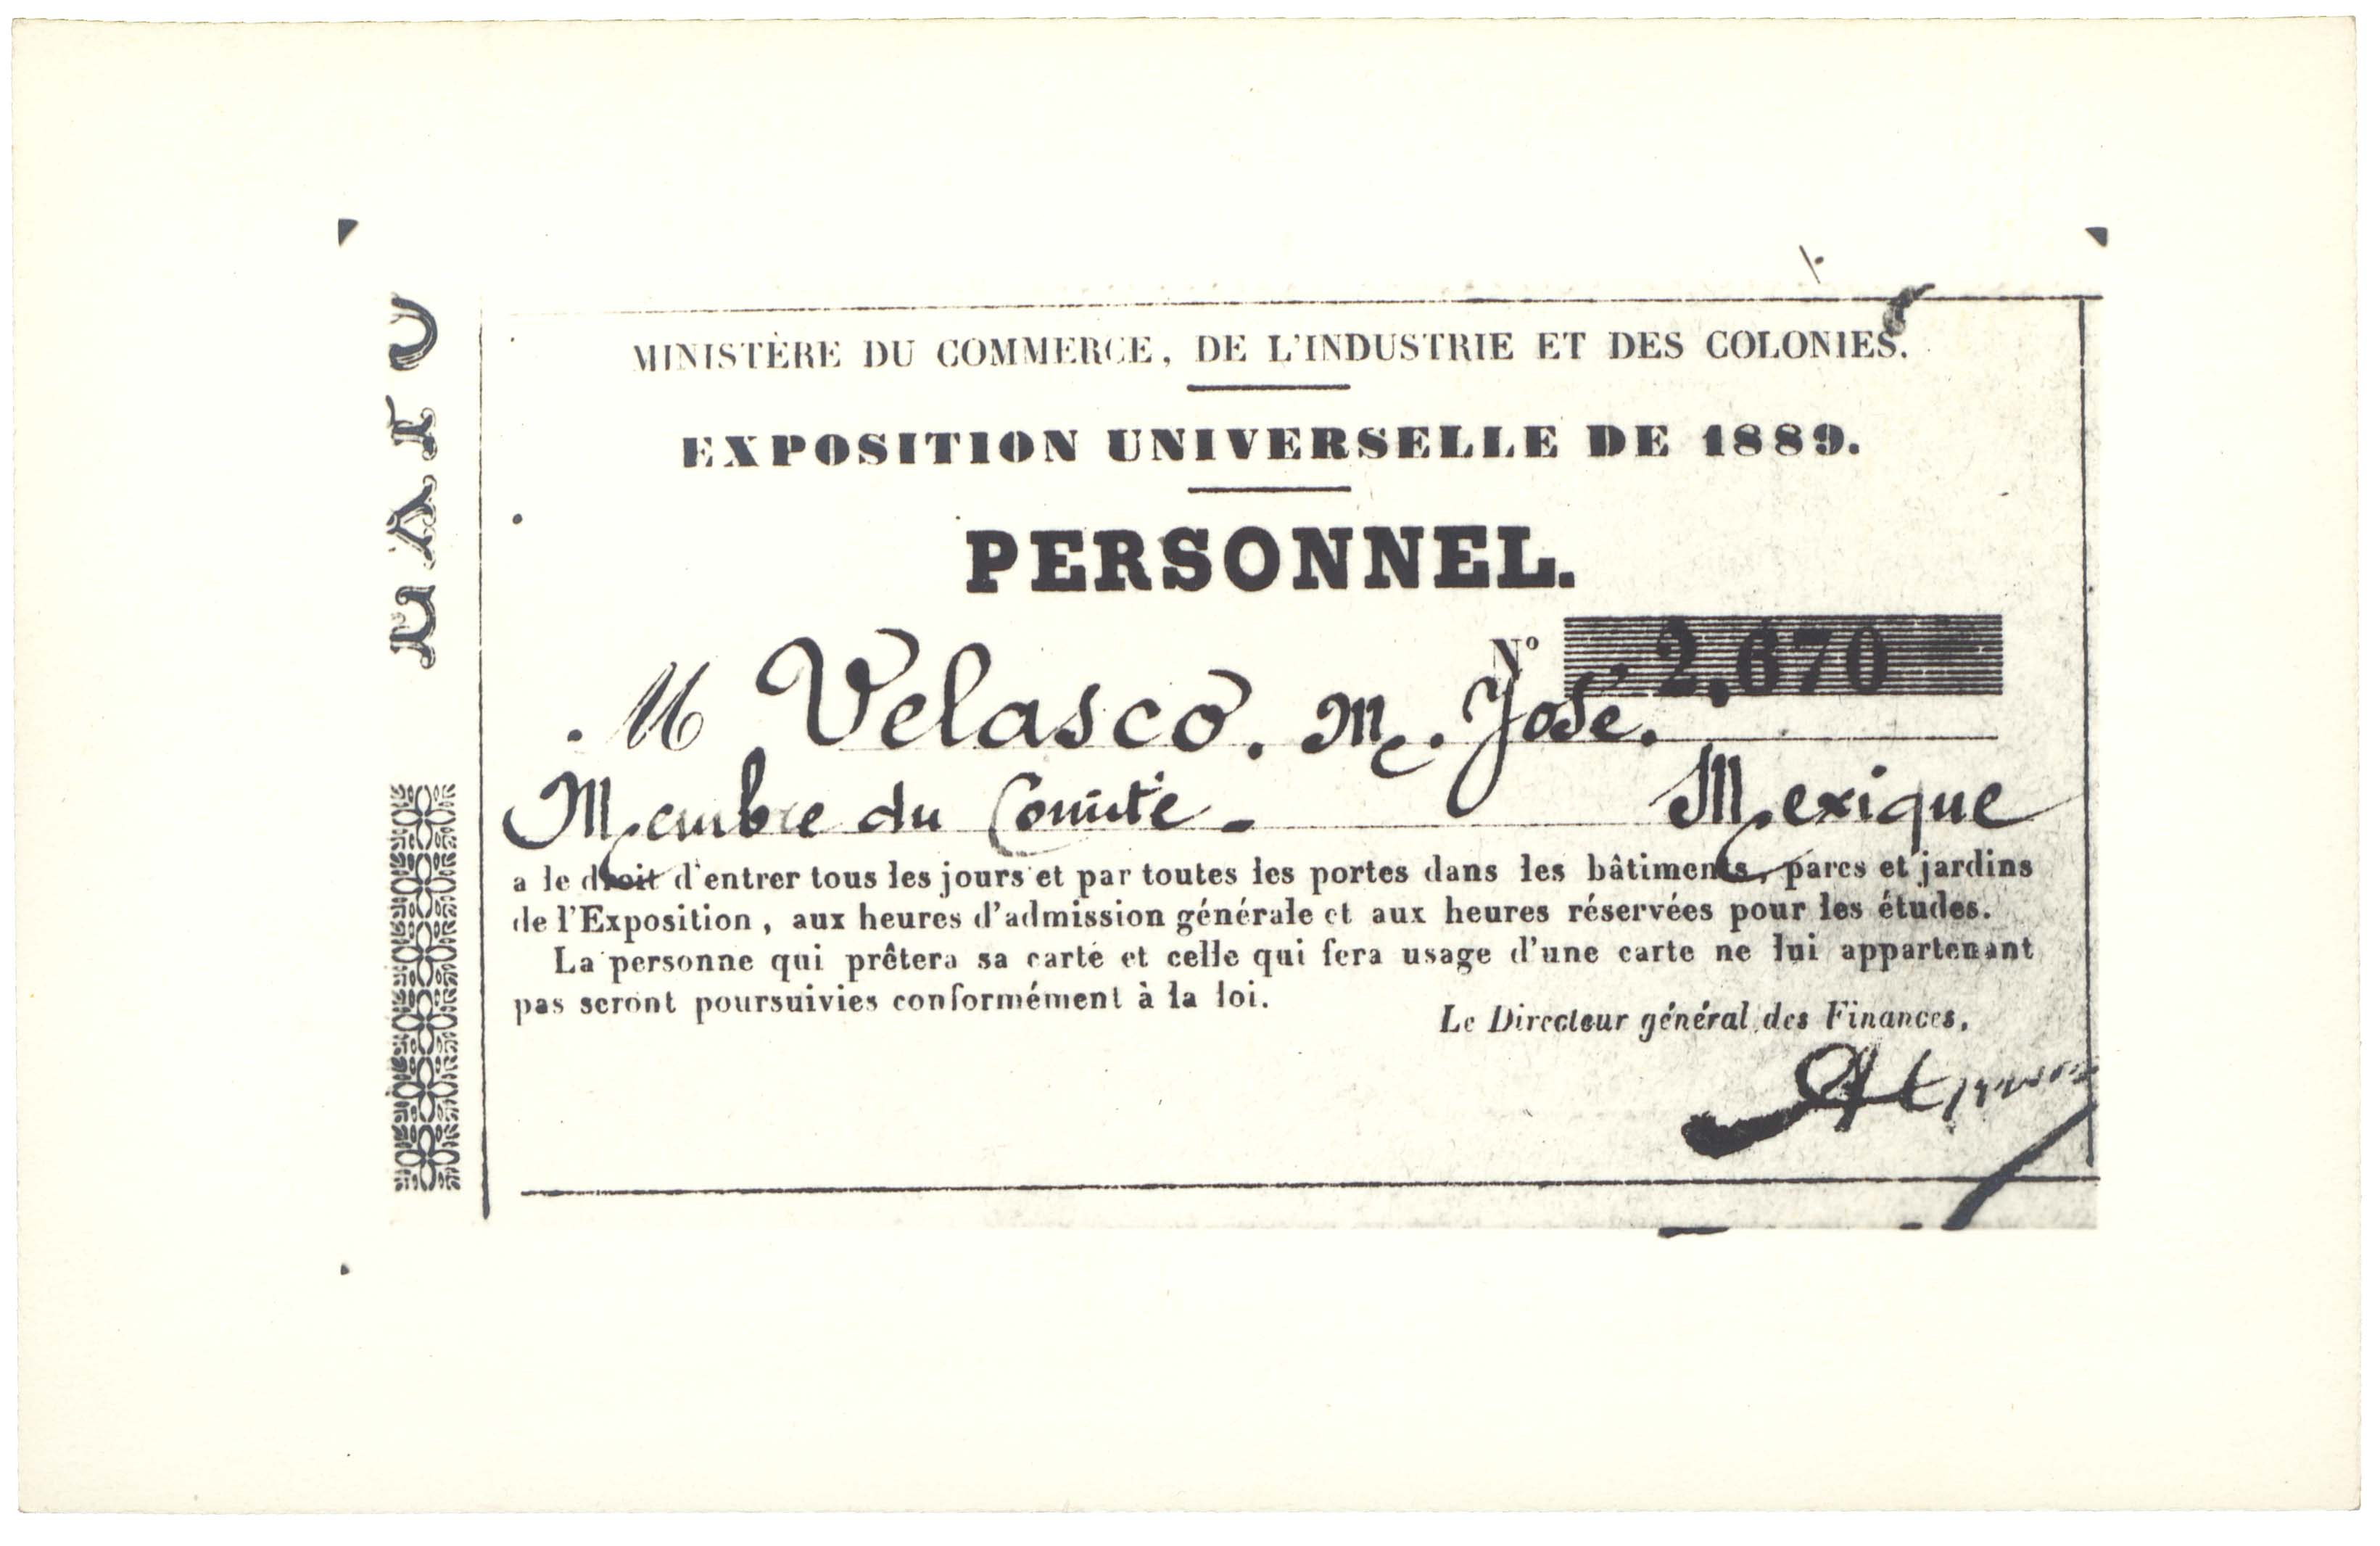 MINISTÈRE DU COMMERCE, DE L'INDUSTRIE ET DES COLONIES.
EXPOSITION UNIVERSELLE DE 1889.
PERSONNEL.
N° 2,670
M Velasco. M. José.
Membre du Comité - Mexique
a le droit d'entrer tous les jours et par toutes les portes dans les bâtiments, parcs et jardins
de l'Exposition, aux heures d'admission générale et aux heures réservées pour les études.
La personne qui prêtera sa carte et celle qui fera usage d'une carte ne lui appartenant
pas seront poursuivies conformément à la loi.
Le Directeur général des Finances,